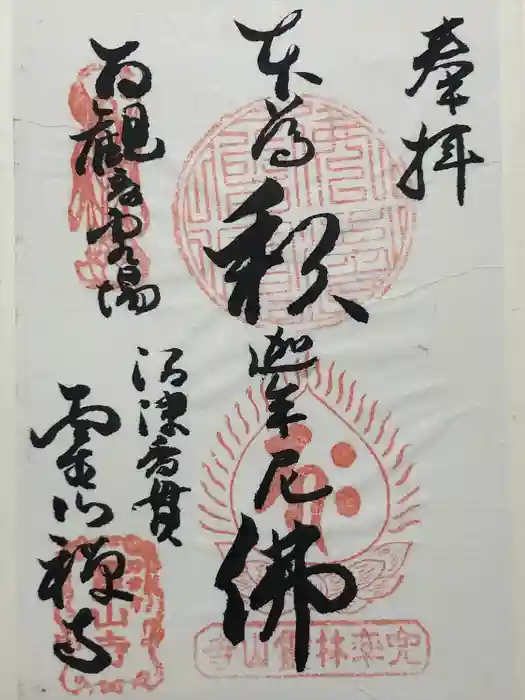 奉拝
本尊
釈迦牟尼佛
百観音霊場
沼津香貫
霊山禅寺
兜率林霊山寺